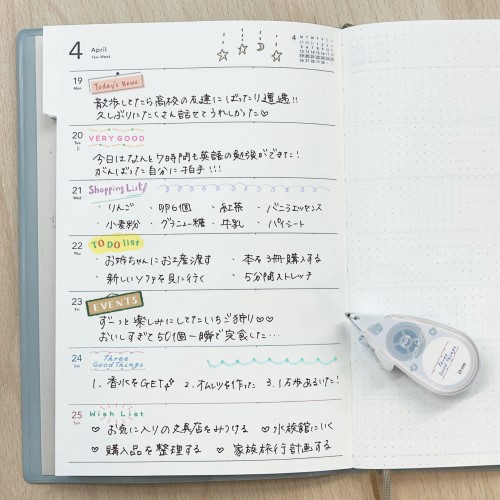 4 April
19 Mon
Today's News
散歩してたら高校の友達にばったり遭遇!!
久しぶりにたくさん話せてうれしかった♡
20 Tue
VERY GOOD
今日はなんと7時間も英語の勉強ができた!
がんばった自分に拍手!!!
21 Wed
Shopping List!
・りんご ・卵6個 ・紅茶 ・バニラエッセンス
・小麦粉 ・グラニュー糖 ・牛乳 ・パイシート
22 Thu
TO DO list
・お姉ちゃんにお土産渡す ・本を3冊購入する
・新しいソファを見に行く ・5分間ストレッチ
23 Fri
EVENTS
ずーっと楽しみにしてたいちご狩り♡♡
おいしすぎて50個一瞬で完食した…
24 Sat
Three Good Things
1. 香水をGET 2. オムレツを作った 3. 1万歩あるいた!
25 Sun
Wish List
♡ お気に入りの文具店をみつける ♡ 水族館にいく
♡ 購入品を整理する ♡ 家族旅行計画する
Three Good Things